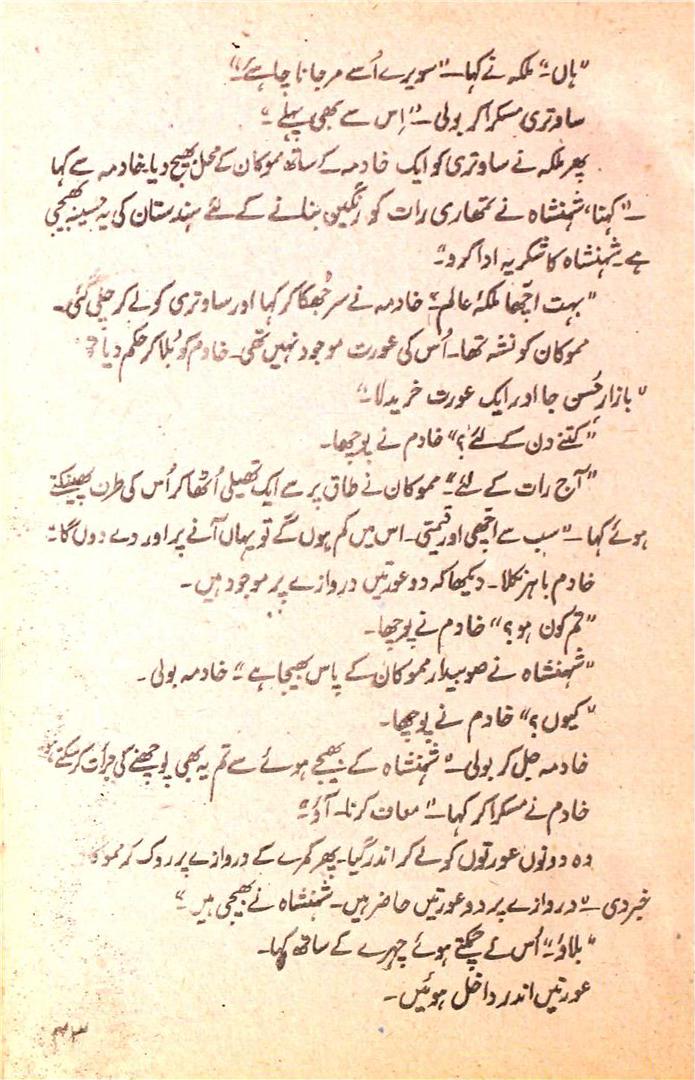 "ہاں۔" ملکہ نے کہا۔ "سویرے اُسے مر جانا چاہئے۔"
ساوتری مسکرا کر بولی۔ "اِس سے بھی پہلے۔"
پھر ملکہ نے ساوتری کو ایک خادمہ کے ساتھ مموکان کے محل بھیج دیا۔ خادمہ سے کہا
۔ "کہنا، شہنشاہ نے تمھاری رات کو رنگین بنانے کے لئے ہندستان کی یہ حسینہ بھیجی
ہے۔ شہنشاہ کا شکریہ ادا کرو۔"
"بہت اچھا ملکۂ عالم۔" خادمہ نے سر جُھکا کر کہا اور ساوتری کو لے کر چلی گئی۔
مموکان کو نشہ تھا۔ اُس کی عورت موجود نہیں تھی۔ خادم کو بُلا کر حکم دیا
"بازارِ حُسن جا اور ایک عورت خرید لا۔"
"کتنے دن کے لئے؟" خادم نے پوچھا۔
"آج رات کے لئے۔" مموکان نے طاق پر سے ایک تھیلی اُٹھا کر اُس کی طرف پھینکتے
ہوئے کہا۔ "سب سے اچھی اور قیمتی۔ اس میں کم ہوں گے تو یہاں آنے پر اور دے دوں گا۔"
خادم باہر نکلا۔ دیکھا کہ دو عورتیں دروازے پر موجود ہیں۔
"تم کون ہو؟" خادم نے پوچھا۔
"شہنشاہ نے صوبیدار مموکان کے پاس بھیجا ہے۔" خادمہ بولی۔
"کیوں؟" خادم نے پوچھا۔
خادمہ جل کر بولی۔ "شہنشاہ کے بھیجے ہوئے سے تم یہ بھی پوچھنے کی جرأت کر سکتے ہو
خادم نے مسکرا کر کہا۔ "معاف کرنا۔ آؤ۔"
وہ دونوں عورتوں کو لے کر اندر گیا۔ پھر کمرے کے دروازے پر روک کر
خبر دی۔ "دروازے پر دو عورتیں حاضر ہیں۔ شہنشاہ نے بھیجی ہیں۔"
"بلاؤ۔" اُس نے چمکتے ہوئے چہرے کے ساتھ کہا۔
عورتیں اندر داخل ہوئیں۔